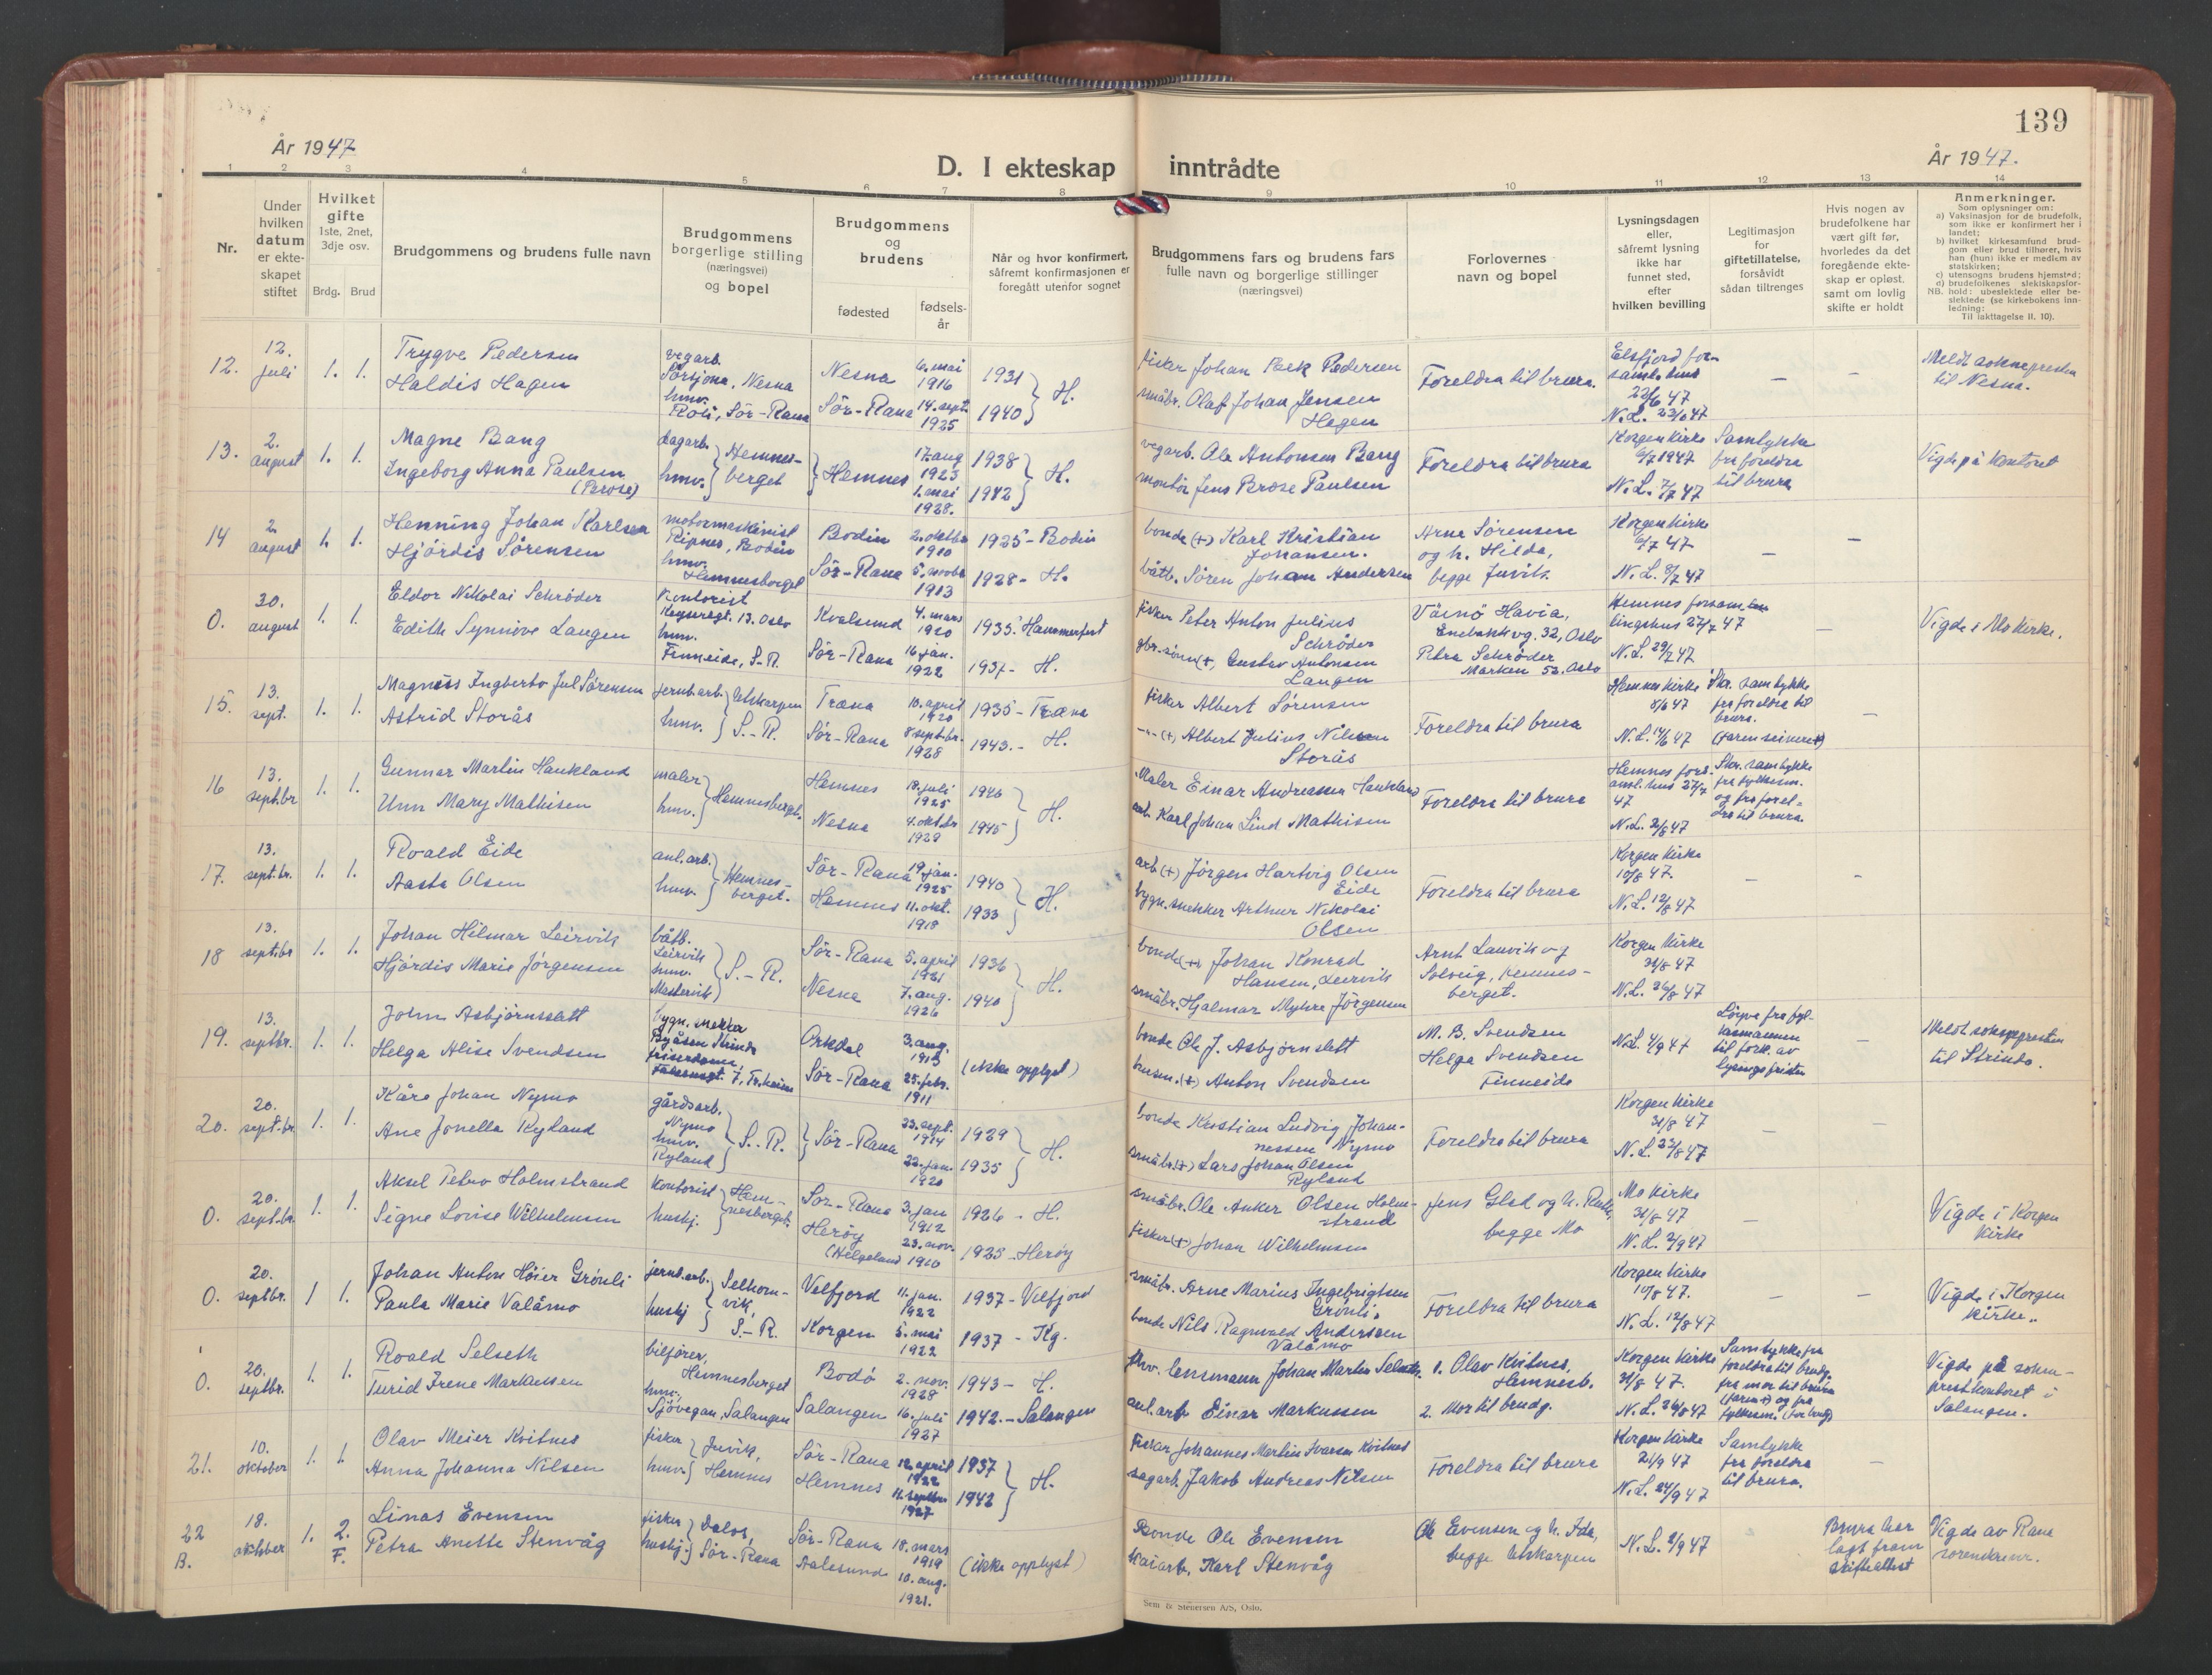 139
År 1947
År 1947.
D. I ekteskap inntrådte
1 2 3 4 5 6 7 8 9 10 11 12 13 14
Nr.
Under
hvilken
datum
er ekte-
skapet
stiftet
Hvilket
gifte
1ste, 2net,
3dje osv.
Brdg. Brud
Brudgommens og brudens fulle navn
Brudgommens
borgerlige stilling
(næringsvei)
og bopel
Brudgommens
og
brudens
fødested
fødsels-
år
Når og hvor konfirmert,
såfremt konfirmasjonen er
foregått utenfor sognet
Brudgommens fars og brudens fars
fulle navn og borgerlige stillinger
(næringsvei)
Forlovernes
navn og bopel
Lysningsdagen
eller,
såfremt lysning
ikke har
funnet sted,
efter
hvilken bevilling
Legitimasjon
for
giftetillatelse,
forsåvidt
sådan tiltrenges
Hvis nogen av
brudefolkene har
vært gift før,
hvorledes da det
foregående ekte-
skap er opløst,
samt om lovlig
skifte er holdt
Anmerkninger.
Som oplysninger om:
a) Vaksinasjon for de brudefolk,
som ikke er konfirmert her i
landet;
b) hvilket kirkesamfund brud-
gom eller brud tilhører, hvis
han (hun) ikke er medlem av
statskirken;
c) utensogns brudens hjemsted;
d) brudefolkenes slektskapsfor-
NB. hold: ubeslektede eller be-
slektede (se kirkebokens inn-
ledning:
Til iakttagelse II. 10).
12.
12.
juli
1. 1.
Trygve Pedersen
Haldis Hagen
vegarb.
Sørsjona, Nesna
hmv.
Sør-Rana
Nesna
Sør-Rana
6. mai
1916
14. sept.
1925
1931
1940 } H.
fisker Johan Pedersen
småbr. Olaf Johan Jensen
Hagen
Foreldra til brura.
Elsfjord for-
saml. hus
22/6 47
N.L. 23/6 47
–
–
Meldt soknepresten
til Nesna.
13.
2.
august
1. 1.
Magne Bang
Ingeborg Anna Paulsen
dagarb.
hmv. } Hemnes-
berget
} Hemnes
17. aug
1923
1. mai
1928.
1938
1942 } H.
vegarb. Ole Antonsen Bang
montør Jens Brose Paulsen
Foreldra til brura
Korgen kirke
6/7 1947
N.L. 7/7 47
Samtykke
fra foreldra
til brura
Vigde på kontoret
14
2.
august
1. 1.
Henning Johan Karlsen
Hjördis Sørensen
motormaskinist
Ripnes, Bodin
hmv.
Hemnesberget
Bodin
Sör-Rana
2. oktbr
1910
1913
1925 - Bodin
1928 - H.
bonde (+) Karl Kristian
Johansen.
båtb. Sören Johan Andersen
Arne Sørensen
og h. Hilda,
begge Juvik.
Korgen kirke
6/7 47
N.L. 8/7 47
–
–
0.
30.
august
1. 1.
Eldor Nikolai Schröder
Edith Synnöve Langen
Kontorist
13. Oslo
hmv.
Finneide, S-R.
Kvalsund
Sör-Rana
4. mars
1910
16 jan.
1922
1935. Hammerfest
1937 - H.
fisker Peter Anton Julius
Schröder
Gustav Antonsen
Langen
Väinö Havia,
Enebakkvg. 32, Oslo
Petra Schröder
Marken 52. Oslo
Hemnes forsam-
lingshus 27/7 47
N.L. 29/7 47
–
Vigde i Mo kirke.
15.
13.
sept.
1. 1.
Magnus Ingberto Jul Sørensen
Astrid Storås
jernb.arb.
hmv. } Utskarpen
S.-R.
Træna
Sör-Rana
10. april
1920
8 septbr.
1928
1935 - Træna
1943. - H.
fisker Albert Sørensen
-"- (+) Albert Julius Nilsen
Storås
Foreldra til brura
Hemnes kirke
8/6 47
N.L. 14/6 47
Skr. samtykke
fra foreldra til
brura.
–
16
13.
sept.br
1. 1.
Gunnar Martin Haukland
Unn Mary Mathisen
maler
hmv. } Hemnesberget.
Hemnes
Nesna
18. juli
1925
4. oktbr
1928
1940
1945 } H.
Maler Einar Andreassen Haukland
arb. Karl Johan Lind Mathisen
Foreldra til brura
Hemnes fors-
aml. hus 27/7
47
N.L. 2/8 47
Skr. samtykke
fra fylkesm.
og fra forel-
dra til brura.
17.
13.
sept.br.
1. 1.
Roald Eide
Aasta Olsen
anl.arb.
hmv. } Hemnes-
berget.
Sör-Rana
Hemnes
19. jan.
1925
11. okt.
1918
1940
1933 } H.
arb (+) Jørgen Hartvig Olsen
Eide
bygn.snekker Arthur Nikolai
Olsen
Foreldra til brura
Korgen kirke
10/8 47.
N.L. 12/8 47
–
–
18
13.
septbr
1. 1.
Johan Hilmar Leirvik
Hjördis Marie Jörgensen
båtb.
Leirvik
hmv.
} S.-R.
Sör-Rana
Nesna
5. april
1921
7. aug.
1926
1936
1940 } H.
bonde (+) Johan Konrad
Hansen, Leirvik
småbr. Hjalmar Myhre Jörgensen
Arnt Lauvik og
Solveig, Hemnes-
berget.
Korgen kirke
31/8 47
N.L. 26/8 47
19.
13.
septbr.
1. 1.
John Asbjørnslett
Helga Alise Svendsen
bygn. snekker
Byåsen Strinda
7, Tr.heim
Orkdal
Sör-Rana
3. aug.
1913
25. febr.
1911
(ikke opplyst)
bonde Ole J. Asbjørnslett
husm. (+) Anton Svendsen
M. B. Svendsen
Helga Svendsen
Finneide
N.L. 4/9 47
Löyve fra fyl-
kesmannen
til fork. av
lysingsfristen
–
Meldt sokneprestin
til Strinda.
20.
20.
sept.br.
1. 1.
Kåre Johan Nymo
Ane Jonella Ryland
gårdsarb.
Nymo
hmv.
Ryland } S.-R.
} Sör-Rana
23. sept.
1914
22. jan.
1920
1929
1935 } H.
bonde Kristian Ludvig Johan-
nessen Nymo
småbr. (+) Lars Johan Olsen
Ryland
Foreldra til brura
Korgen kirke
31/8 47
N.L. 23/8 47
–
–
0.
20.
sept.br.
1. 1.
Aksel Petro Holmstrand
Signe Lovise Wilhelmsen
kontorist
huskj. } Hem-
nesberget.
Sør-Rana
Herøy
(Helgeland)
3. jan
1912
23. nov.
1910
1926 - H.
1925 - Herøy
småbr. Ole Anker Olsen Holm-
strand
fisker (+) Johan Wilhelmsen
Jens Glad og h.
begge Mo
Mo kirke
31/8 47
N.L. 2/9 47
–
Vigde i Korgen
kirke
0.
20.
septbr.
1 1.
Johan Anton Höier Grönli
Paula Marie Valåmo
jernb.arb.
huskj } Selhorn-
vik,
S.-R.
Velfjord
Korgen
11. jan.
1922
5. mai
1922
1937 - Velfjord
1937 - Kg.
småbr. Arne Marius Ingebrigtsen
Grönli.
bonde Nils Ragnvald Anderssen
Valåmo
Foreldra til brura
Korgen kirke
10/8 47.
N.L. 12/8 47
–
–
Vigde i Korgen
kirke.
0.
20.
septbr.
1. 1.
Roald Selseth
Turid Irene Markussen
bilfører,
Hemnesberget
hmv.
Sjövegan, Salangen
Bodö
Salangen
2. nov.
1928
16. juli
1927
1943 - H.
1942. - Salangen
fhv. lensmann Johan Martin Selseth
anl.arb Einar Markussen
1. Olav Kvitnes,
Hemnesb.
2. Mor til brudg.
Korgen kirke
31/8 47.
N.L. 26/8 47
Samtykke fra
foreldra til brudg.
fra mor til brura
(faren +) og fra
fylkesm. (for brudg)
Vigde på sokne-
prestkontoret i
Salangen.
21.
10.
oktober
1. 1
Olav Meier Kvitnes
Anna Johanna Nilsen
fisker
hmv. } Juvik,
Hemnes
Sör-Rana
Hemnes
12. april
1922
11. septbr
1927
1937
1942 } H.
Fisker Johannes Martin Ivarsen Kvitnes
sagarb. Jakob Andreas Nilsen
Foreldra til brura
Korgen kirke
21/9 47
N.L. 24/9 47
Samtykke
fra foreldra
til brura.
–
22
B.
18.
oktober
1. 2.
F.
Linas Evensen
Petra Anette Stenvåg
fisker
huskj. } Dalos,
Sör-Rana
Sör-Rana
Aalesund
18. mars
1919
10. aug.
1921.
(ikke opplyst)
Bonde Ole Evensen
kaiarb. Karl Stenvåg
Ole Evensen og h. Ida,
begge Utskarpen
N.L. 2/9 47
Brura har
lagt fram
skifteattest
Vigde av Rana
sorenskriver.
Sem & Stenersen A/S, Oslo.